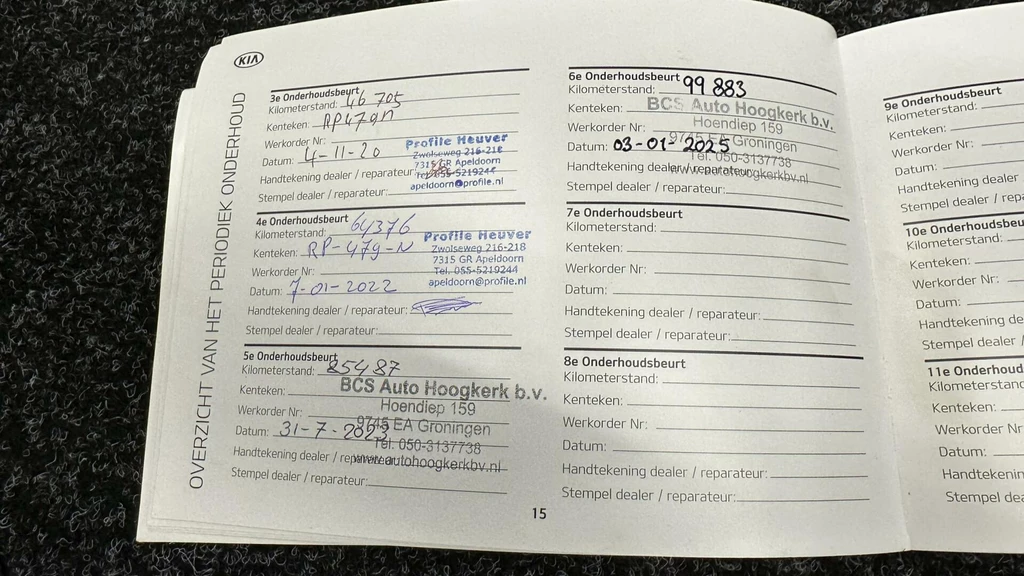 KIA
OVERZICHT VAN HET PERIODIEK ONDERHOUD
3e Onderhoudsbeurt
Kilometerstand: 46 705
Kenteken: RP479N
Werkorder Nr:
Datum: 4-11-20
Handtekening dealer / reparateur:
Stempel dealer / reparateur:
Profile Heuver
Zwolseweg 216-218
7315 GR Apeldoorn
Tel. 055-5219244
apeldoorn@profile.nl
4e Onderhoudsbeurt
Kilometerstand: 64376
Kenteken: RP-479-N
Werkorder Nr:
Datum: 7-01-2022
Handtekening dealer / reparateur:
Stempel dealer / reparateur:
Profile Heuver
Zwolseweg 216-218
7315 GR Apeldoorn
Tel. 055-5219244
apeldoorn@profile.nl
5e Onderhoudsbeurt
Kilometerstand: 85487
Kenteken:
Werkorder Nr:
Datum: 31-7-2023
Handtekening dealer / reparateur:
Stempel dealer / reparateur:
BCS Auto Hoogkerk b.v.
Hoendiep 159
9745 EA Groningen
Tel. 050-3137738
www.autohoogkerkbv.nl
6e Onderhoudsbeurt
Kilometerstand: 99 883
Kenteken:
Werkorder Nr:
Datum: 03-01-2025
Handtekening dealer / reparateur:
Stempel dealer / reparateur:
BCS Auto Hoogkerk b.v.
Hoendiep 159
9745 EA Groningen
Tel. 050-3137738
www.autohoogkerkbv.nl
7e Onderhoudsbeurt
Kilometerstand:
Kenteken:
Werkorder Nr:
Datum:
Handtekening dealer / reparateur:
Stempel dealer / reparateur:
8e Onderhoudsbeurt
Kilometerstand:
Kenteken:
Werkorder Nr:
Datum:
Handtekening dealer / reparateur:
Stempel dealer / reparateur:
15
9e Onderhoudsbeurt
Kilometerstand:
Kenteken:
Werkorder Nr:
Datum:
Handtekening dealer
Stempel dealer / repa
10e Onderhoudsbeu
Kilometerstand:
Kenteken:
Werkorder Nr:
Datum:
Handtekening de
Stempel dealer /
11e Onderhoud
Kilometerstand
Kenteken:
Werkorder Nr
Datum:
Handtekenin
Stempel dea